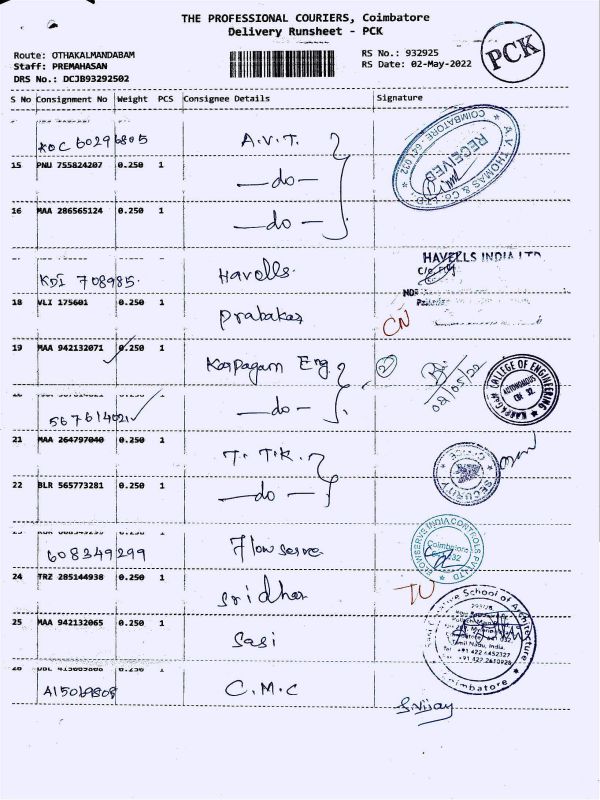 THE PROFESSIONAL COURIERS, Coimbatore
Delivery Runsheet - PCK
PCK
Route: OTHAKALMANDABAM
Staff: PREMAHASAN
DRS No.: DCJB93292502
RS No.: 932925
RS Date: 02-May-2022
S No Consignment No Weight PCS Consignee Details Signature
KOC 60296805 A.V.T.
15 PNU 755824207 0.250 1 -do-
16 MAA 286565124 0.250 1 -do-
A.V. THOMAS & CO. LTD.
COIMBATORE 641 032
RECEIVED
KDI 708985. Havells.
HAVELLS INDIA LTD
18 VLI 175601 0.250 1 Prabakar
CN
19 MAA 942132071 0.250 1 Karpagam Eng
2
567614021 -do-
KARPAGAM COLLEGE OF ENGINEERING
AUTONOMOUS
21 MAA 264797040 0.250 1 T. T.K.
22 BLR 565773281 0.250 1 -do-
SECURITY
608349299 Flowserve
Coimbatore
24 TRZ 285144938 0.250 1 Sridhar
25 MAA 942132065 0.250 1 Sasi
School of Architecture
Tamil Nadu, India.
Coimbatore
A15069808 C.M.C
S.Vijay